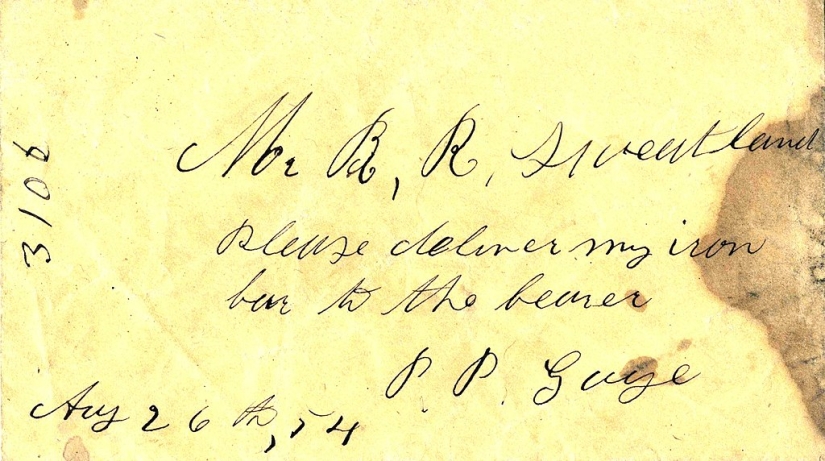 Mr B, R, Sweatland
please deliver my iron
bar to the bearer
P. P. Gage
Aug 26 th, 54
3106